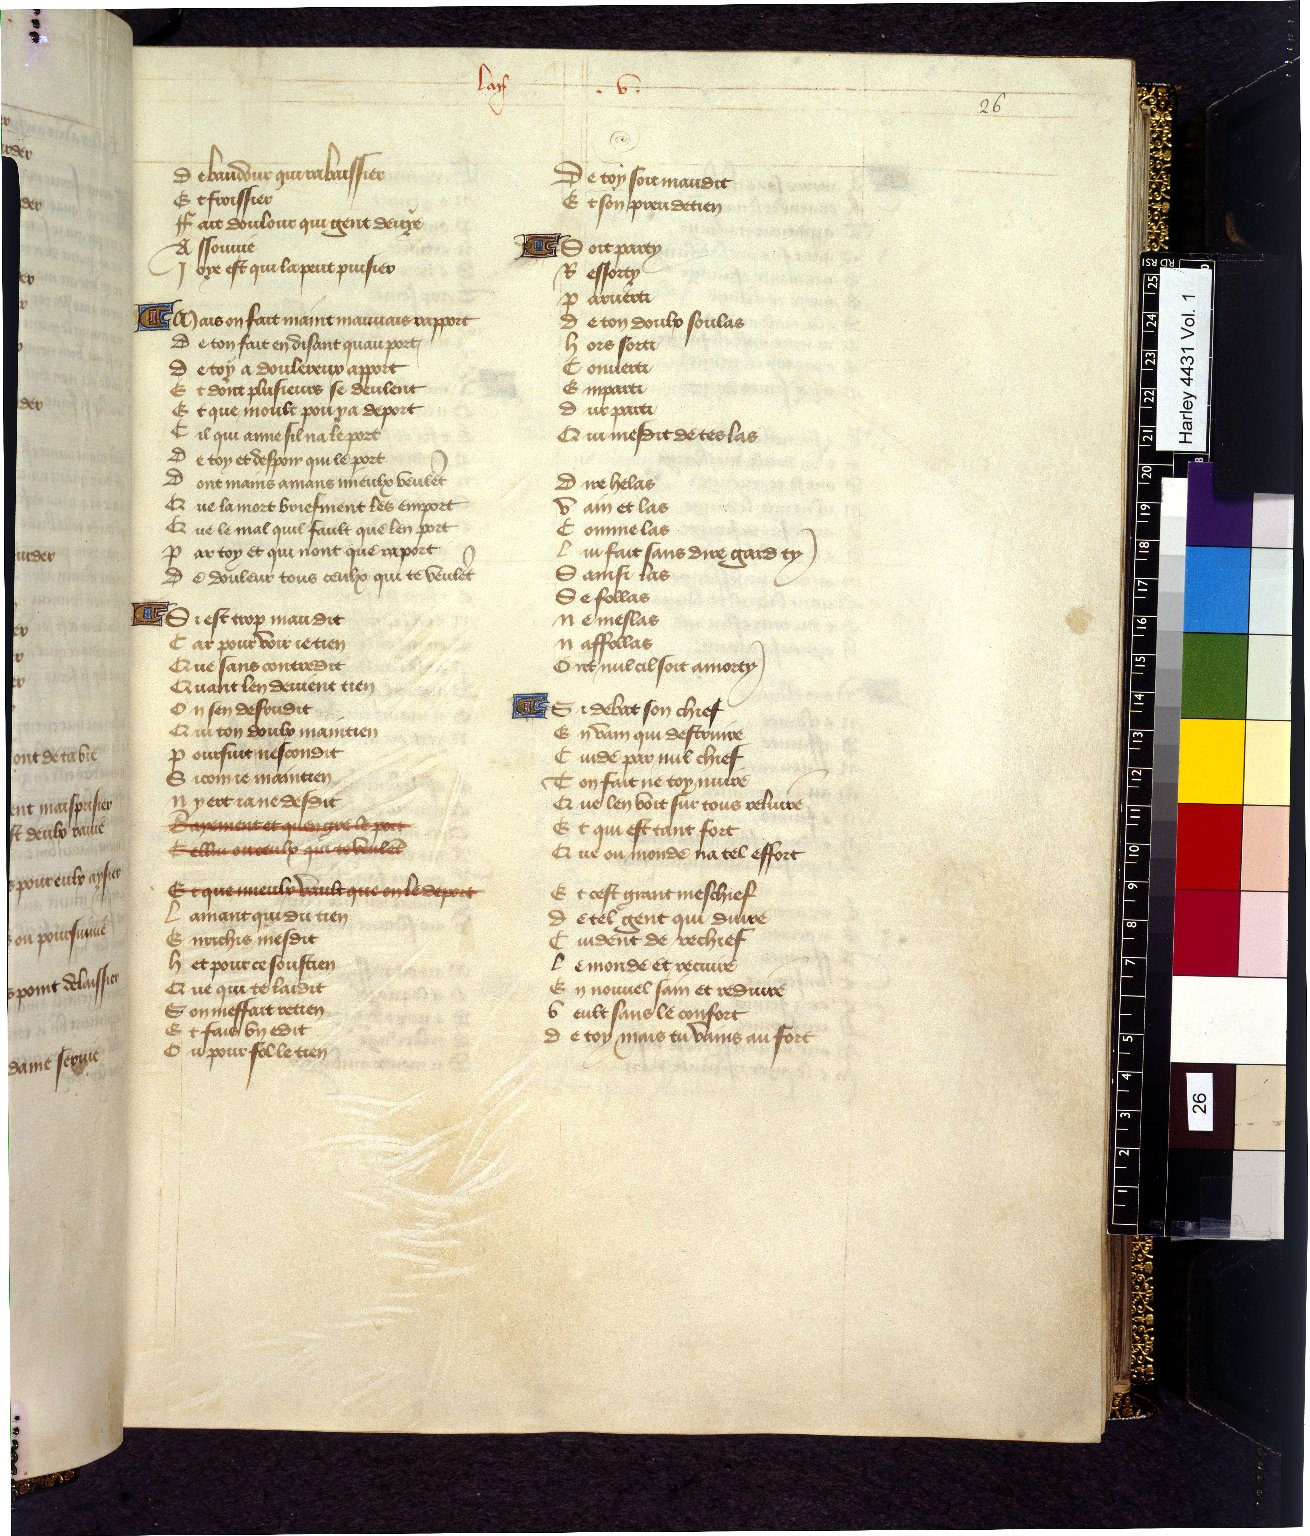 Lay
.v.
26
De baudour qui rabaissier
Et froissier
Fait doulour qui gent devye
Assouvie
Joye est qui la peut puisier
Mais on fait maint mauvais rapport
De ton fait en disant quau port
De toy a doulereux apport
Et dont plusieurs se deulent
Et que moult pou y a deport
Cil qui aime sil na le port
De toy et despoir qui le port
Dont mains amans mieulx veulet
Que la mort briefment les emport
Que le mal quil fault que len port
Par toy et qui nont que raport
De douleur tous ceulx qui te veulet
Si est trop maudit
Car pour voir je tien
Que sans contredit
Quant len devient tien
On sen desfendit
Qui ton doulx maintien
Poursuit nescondit
Si com je maintien
Ny ert ja ne desdit
Paiement et quen gre le port
Cellui ou ceulx qui te veulet
Et que mieulx vault que on le deport
Lamant qui dit tien
Enrichis mesdit
Het pour ce soustien
Que qui te laidit
Son meffait retien
Et fais un edit
Ou pour fol le tien
De toy soit maudit
Et son preu detien
Soit party
Ressorty
Parverti
De ton doulx soulas
Hors sorti
Converti
Emparti
Dur parti
Qui mesdit de tes las
Dire helas
Vain et las
Comme las
Lui fait sans dire gard ty
Sainsi las
Se follas
Ne meslas
Naffollas
Ont nul cil soit amorty
Si debat son chief
En vain qui destruire
Cuide par nul chief
Ton fait ne toy nuire
Que len voit sur tous reluire
Et qui est tant fort
Que ou monde na tel effort
Et cest grant meschief
De tel gent qui duire
Cuident de rechief
Le monde et recuire
En nouvel sain et reduire
Veult sans le confort
De toy mais tu vains au fort
ont de ta vie
dame servie
Harley 4431 Vol. 1
26
25
24
23
22
21
20
19
18
17
16
15
14
13
12
11
10
9
8
7
5
4
3
2
1